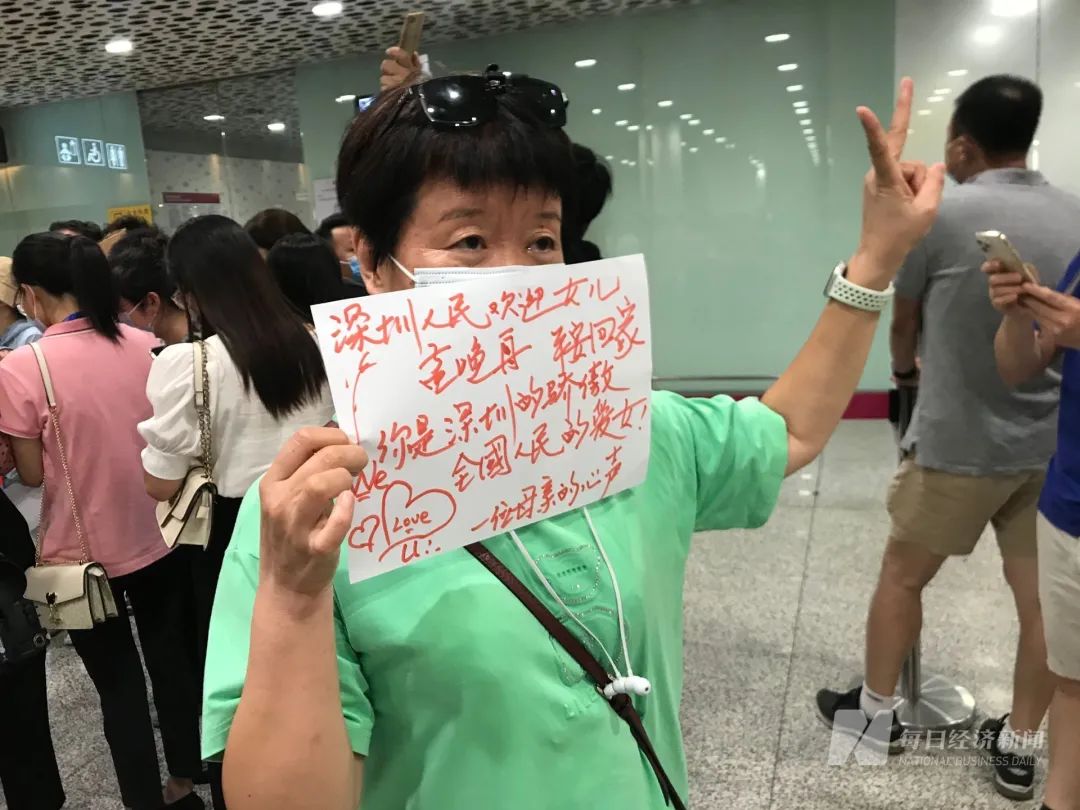 深圳人民欢迎女儿
孟晚舟 平安回家
你是深圳的骄傲
全國人民的爱女!
We
Love
U
一位母亲的心声
每日经济新闻
NATIONAL BUSINESS DAILY